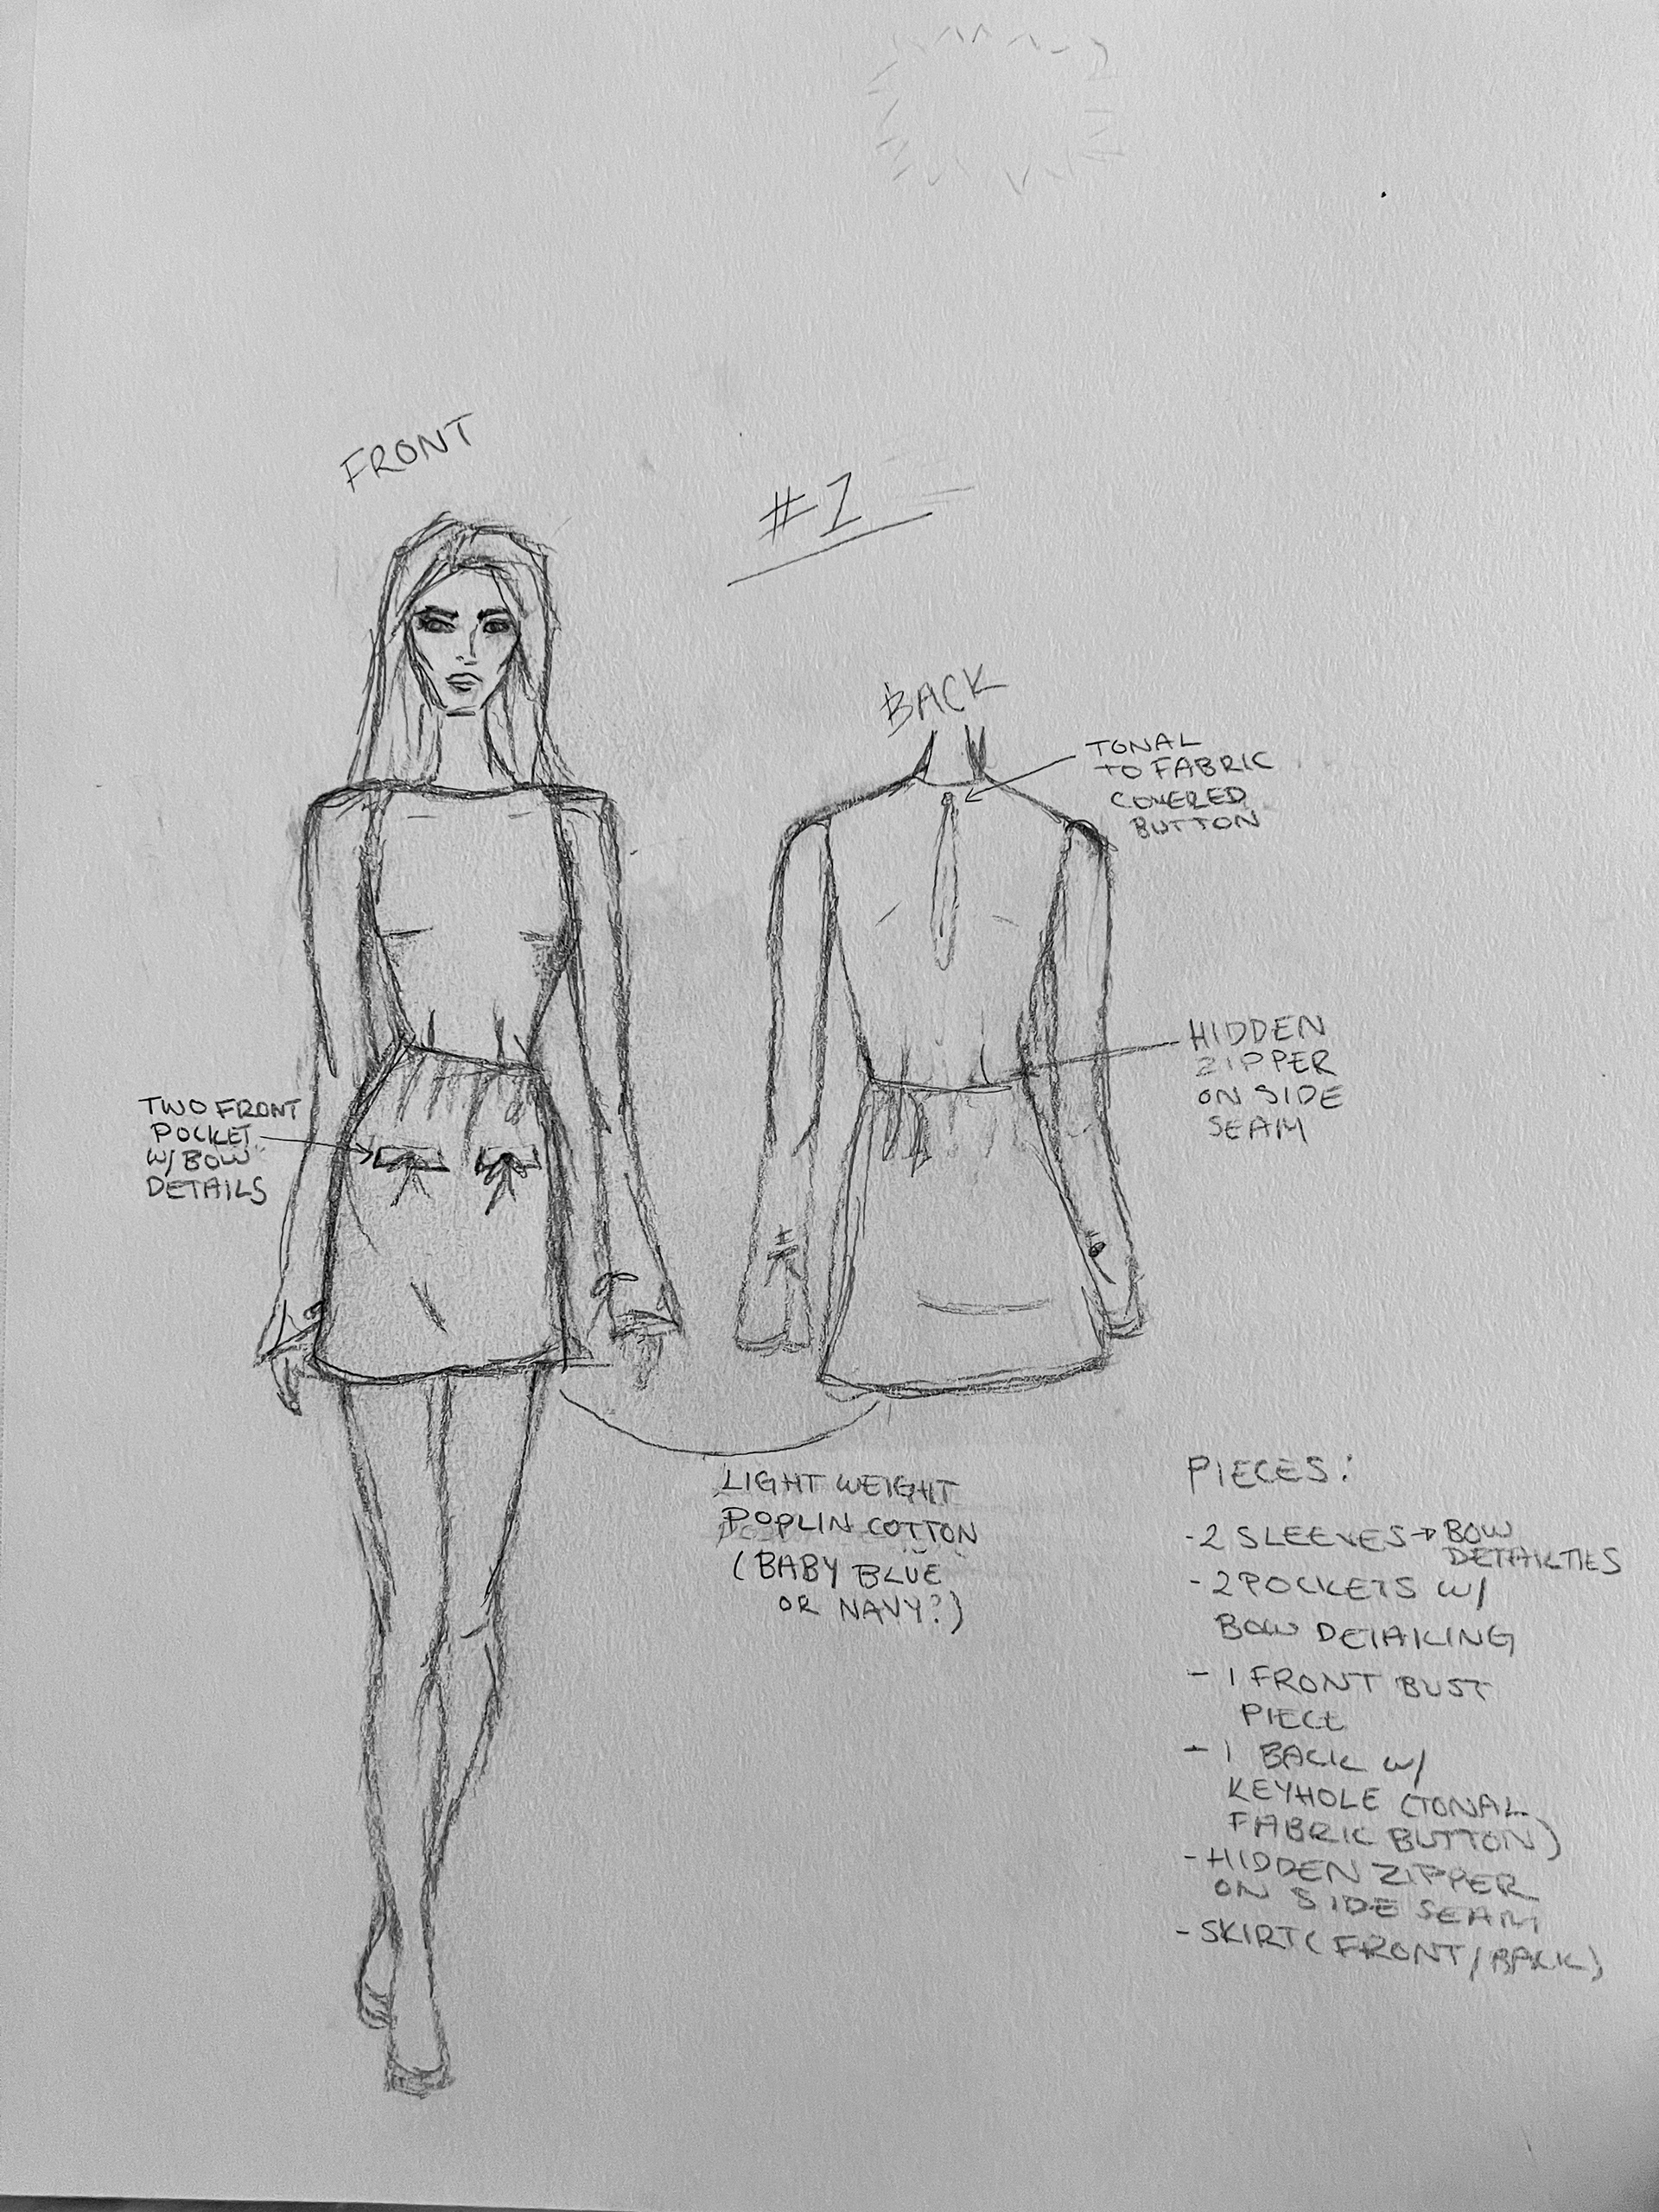 FRONT
#1
BACK
TONAL
TO FABRIC
COVERED
BUTTON
HIDDEN
ZIPPER
ON SIDE
SEAM
TWO FRONT
POCKET
W/ BOW
DETAILS
LIGHT WEIGHT
POPLIN COTTON
(BABY BLUE
OR NAVY?)
PIECES:
- 2 SLEEVES → BOW
DETAIL TIES
- 2 POCKETS W/
BOW DETAILING
- 1 FRONT BUST
PIECE
- 1 BACK W/
KEYHOLE (TONAL
FABRIC BUTTON)
- HIDDEN ZIPPER
ON SIDE SEAM
- SKIRT (FRONT/BACK)